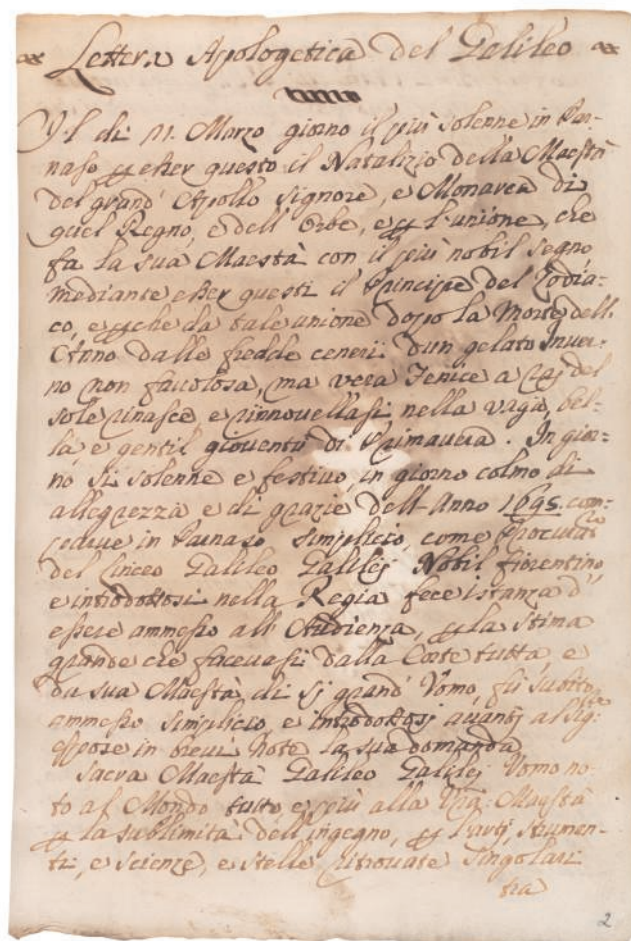 Lettera Apologetica del Galileo
Il di 21. Marzo giorno il più solenne in Par-
naso p esser questo il Natalizio della Maestà
del grand' Apollo Signore, e Monarca di
quel Regno, e dell' Orbe, e p l'unione, che
fa la sua Maestà con il più nobil segno
mediante esser questi il Principe del Zodia=
co, e pche da tale unione dopo la Morte dell'
Anno dalle fredde ceneri d'un gelato Inver=
no non favolosa, ma vera Fenice a raj del
sole rinasce e rinnovellasi nella vaga, bel=
la, e gentil gioventù di Primavera. In gior=
no si solenne e festivo, in giorno colmo di
allegrezza e di grazie dell' Anno 1695. com=
parve in Parnaso Simplicio, come Procurat.
del Linceo Galileo Galilej Nobil fiorentino,
e introdottosi nella Regia fece istanza d'
essere ammesso all' Audienza, p la stima
grande che facevasi dalla Corte tutta, e
da sua Maestà di sj grand' Vomo, fù subito
ammesso Simplicio, e introdottosj avantj al Sig.
espose in brevi note la sua domanda
Sacra Maestà Galileo Galilej Vomo no-
to al Mondo tutto, e più alla Vra Maestà
p la sublimità dell' ingegno, p l'artj, strumen-
ti, e scienze, e stelle ritrovate singolari
tra
2